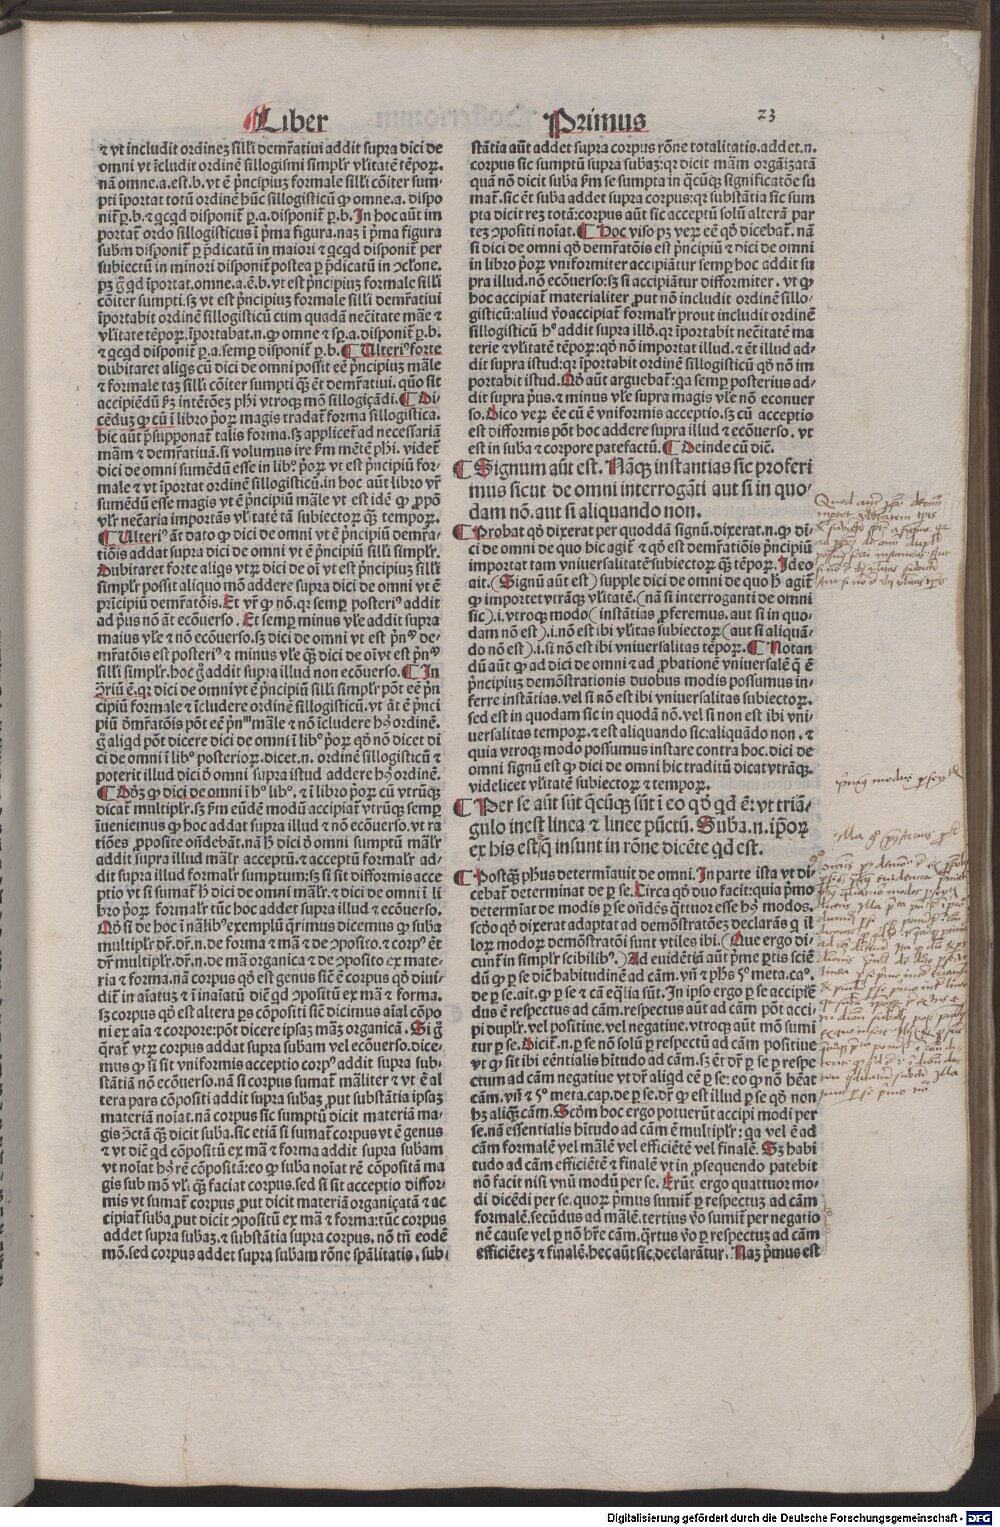 Liber
Primus
23
⁊ vt includit ordineꝫ silłi demr̄atiui addit supra dici de
omni vt īcludit ordinē sillogismi simplr̄ vl̄itatē tēpoꝝ.
nā omne.a.est.b.vt ē pͥncipiuꝫ formale silłi cōiter sum⸗
pti īportat totū ordinē hūc sillogisticū ꝙ omne.a. dispo
nit̄ ꝑ.b.⁊ qcqd disponit̄ ꝑ.a.disponit̄ ꝑ.b.In hoc aūt im
portat̄ ordo sillogisticus ī pͥma figura.naꝫ ī pͥma figura
subm̄ disponit̄ ꝑ p̄dicatū in maiori ⁊ qcqd disponit̄ per
subiectū in minori disponit̄ postea ꝑ p̄dicatū in ꝯcl̄one.
pꝫ g̊ qd īportat.omne.a.ē.b.vt est pͥncipiuꝫ formale silłi
cōiter sumpti.sꝫ vt est pͥncipiuꝫ formale silłi demr̄atiui
īportabit ordinē sillogisticū cum quadā necītate māe ⁊
vl̄itate tēpoꝝ.īportabat.n.ꝙ omne ⁊ sꝑ.a.disponit̄ ꝑ.b.
⁊ qcqd disponit̄ ꝑ.a.semꝑ disponit̄ ꝑ.b.¶ Ulteriꝰ forte
dubitaret aliqs cū dici de omni possit eē pͥncipiuꝫ māle
⁊ formale taꝫ silłi cōiter sumpti qꝫ ēt demr̄atiui. quō sit
accipiēdū ẜm intētōeꝫ phi vtroqꝫ mō sillogiçādi.¶ Di
cēduꝫ ꝙ cū ī libro pͥoꝝ magis tradat̄ forma sillogistica.
hic aūt p̄supponat̄ talis forma.sꝫ applicet̄ ad necessariā
mām ⁊ demr̄atiuā.si volumus ire ẜm mētē phi. videt̄
dici de omni sumēdū esse in libꝰ pͥoꝝ vt est pͥncipiū for⸗
male ⁊ vt īportat ordinē sillogisticū.in hoc aūt libro vr̄
sumēdū esse magis vt ē pͥncipiū māle vt est idē ꝙ ꝓpō
vlr̄ nec̄aria importās vl̄itatē tā subiectoꝝ qꝫ tempoꝝ.
¶ Ulteriꝰ āt dato ꝙ dici de omni vt ē pͥncipiū demr̄a⸗
tiōis addat supra dici de omni vt ē pͥncipiū silłi simplr̄.
Dubitaret forte aliqs vtꝝ dici de oī vt est pͥncipiuꝫ silłi
simplr̄ possit aliquo mō addere supra dici de omni vt ē
pͥncipiū demr̄atōis.Et vr̄ ꝙ nō.qꝛ semꝑ posteriꝰ addit
ad pͥus nō āt ecōuerso. Et semꝑ minus vl̄e addit supra
maius vl̄e ⁊ nō ecōuerso.sꝫ dici de omni vt est pͥnᵐ de⸗
mr̄atōis est posteriꝰ ⁊ minus vl̄e qꝫ dici de oī vt est pͥnᵐ
silłi simplr̄.hoc g̊ addit supra illud non ecōuerso.¶ In
ꝯͥriū ē.qꝛ dici de omni vt ē pͥncipiū silłi simplr̄ pōt eē pͥn
cipiū formale ⁊ īcludere ordinē sillogisticū.vt āt ē pͥnci
piū dm̄r̄atōis pōt eē pͥnᵐ māle ⁊ nō īcludere hꝰ ordinē.
g̊ aliqd pōt dicere dici de omni ī libꝰ pͥoꝝ qd̄ nō dicet di
ci de omni ī libꝰ posterioꝝ.dicet.n. ordinē sillogisticū ⁊
poterit illud dici d̄ omni supra istud addere hꝰ ordinē.
¶ Dōꝫ ꝙ dici de omni ī hꝰ libꝰ. ⁊ ī libro pͥoꝝ cū vtrūqꝫ
dicat̄ multiplr̄.sꝫ ẜm eūdē modū accipiat̄ vtrūqꝫ semꝑ
īueniemus ꝙ hoc addat supra illud ⁊ nō ecōuerso.vt ra
tiōes ꝓposite oñdebāt.nā ħ dici d̄ omni sumptū mālr̄
addit supra illud mālr̄ acceptū.⁊ acceptū formalr̄ ad⸗
dit supra illud formalr̄ sumptum:sꝫ si sit difformis acce
ptio vt si sumat̄ ħ dici de omni mālr̄.⁊ dici de omni ī li
bro pͥoꝝ formalr̄ tūc hoc addet supra illud ⁊ ecōuerso.
Qd̄ si de hoc ī nālibꝰ exemplū qͣrimus dicemus ꝙ suba
multiplr̄ dr̄.dr̄.n. de forma ⁊ mā ⁊ de ꝯposito.⁊ corpꝰ ēt
dr̄ multiplr̄.dr̄.n. de mā organica ⁊ de ꝯposito ex mate⸗
ria ⁊ forma.nā corpus qd̄ est genus sic ē corpus qd̄ diui⸗
dit̄ in aīatuꝫ ⁊ ī inaīatū diēt̄ qd ꝯpositū ex mā ⁊ forma.
sꝫ corpus qd̄ est altera ps cōpositi sic dicimus aīal cōpo
ni ex aīa ⁊ corpore:pōt dicere ipsaꝫ māꝫ organicā. Si g̊
qͣrat̄ vtꝝ corpus addat supra subam vel ecōuerso.dice⸗
mus ꝙ si sit vniformis acceptio corpꝰ addit supra sub⸗
stātiā nō ecōuerso.nā si corpus sumat̄ māliter ⁊ vt ē al
tera pars compositi addit supra subaꝫ prout substātia ipsaꝫ
materiā noīat.nā corpus sic sumptū dicit materiā ma⸗
gis ꝯctā qꝫ dicit suba.sic etiā si sumat̄ corpus vt ē genus
⁊ vt diēt̄ qd cōpositū ex mā ⁊ forma addit supra subam
vt noīat hꝰ rē cōpositā:eo ꝙ suba noīat rē cōpositā ma
gis sub mō vl̄i qꝫ faciat corpus.sed si sit acceptio diffor⸗
mis vt sumat̄ corpus ꝓut dicit materiā organiçatā ⁊ ac
cipiat̄ suba ꝓut dicit ꝯpositū ex mā ⁊ forma:tūc corpus
addet supra subaꝫ.⁊ substātia supra corpus. nō tn̄ eodē
mō.sed corpus addet supra subam rōne sp̄alitatis.sub⸗
stātia aūt addet supra corpus rōne totalitatis.addet.n.
corpus sic sumptū supra subaꝫ:qꝛ dicit mām orgāiçatā
quā nō dicit suba ẜm se sumpta in qͣcūqꝫ significatōe su
mat̄.sic ēt suba addet supra corpus:qꝛ substātia sic sum
pta dicit rez totā:corpus aūt sic acceptū solū alterā par
teꝫ ꝯpositi noīat.¶ Hoc viso pꝫ veꝝ eē qd̄ dicebat̄. nā
si dici de omni qd̄ demr̄atōis est pͥncipiū ⁊ dici de omni
in libro pͥoꝝ vniformiter accipiāt̄ semꝑ hoc addit su
pra illud.nō ecōuerso:sꝫ si accipiāt̄ difformiter. vt ꝙ
hoc accipiat̄ materialiter ꝓut nō includit ordinē sillo⸗
gisticū:aliud v̄o accipiat̄ formalr̄ prout includit ordinē
sillogisticū hꝰ addit supra illḋ.qꝛ īportabit necītatē ma
terie ⁊ vl̄itatē tēpoꝝ:qd̄ nō importat illud. ⁊ ēt illud ad⸗
dit supra istud:qꝛ īportabit ordinē sillogisticū qd̄ nō im
portabit istud.Qd̄ aūt arguebat̄:qa semꝑ posterius ad⸗
dit supra pͥus.⁊ minus vl̄e supra magis vl̄e nō econuer
so.Dico veꝝ eē cū ē vniformis acceptio.sꝫ cū acceptio
est difformis pōt hoc addere supra illud ⁊ ecōuerso. vt
est in suba ⁊ corpore patefactū.¶ Deinde cū diē.
¶ Signum aūt est. Nāqꝫ instantias sic proferi
mus sicut de omni interrogāti aut si in quo⸗
dam nō.aut si aliquando non.
¶ Probat qd̄ dixerat per quoddā signū.dixerat.n.ꝙ di⸗
ci de omni de quo hic agit̄ ⁊ qd̄ est demr̄atiōis pͥncipiū
importat tam vniuersalitatē subiectoꝝ qꝫ tēpoꝝ.Ideo
ait.(Signū aūt est) supple dici de omni de quo ħ agit̄
ꝙ importet vtrāqꝫ vl̄itatē.(nā si interroganti de omni
sic).i.vtroqꝫ modo (instātias ꝓferemus.aut si in quo⸗
dam nō est).i.nō est ibi vl̄itas subiectoꝝ (aut si aliquā⸗
do nō est).i.si nō est ibi vniuersalitas tēpoꝝ.¶ Notan
dū aūt ꝙ ad dici de omni ⁊ ad ꝓbationē vniuersalē q̄ ē
pͥncipiuꝫ demōstrationis duobus modis possumus in⸗
ferre instātias.vel si nō est ibi vniuersitas subiectoꝝ.
sed est in quodam sic in quodā nō.vel si non est ibi vni⸗
uersalitas tempoꝝ.⁊ est aliquando sic:aliquādo non.⁊
quia vtroqꝫ modo possumus instare contra hoc.dici de
omni signū est ꝙ dici de omni hic traditū dicat vtrāqꝫ.
videlicet vl̄itatē subiectoꝝ ⁊ tempoꝝ.
¶ Per se aūt sūt qͣcūqꝫ sūt ī eo qd̄ qd ē:vt triā⸗
gulo inest linea ⁊ linee pūctū. Suba.n.ip̄oꝝ
ex his est:qͣ insunt in rōne dicēte qd est.
¶ Postqꝫ phus determīauit de omni.In parte ista vt di⸗
cebat̄ determinat de ꝑ se.Circa qd̄ duo facit:quia pͥmo
determīat de modis ꝑ se oñdēs qͣttuor esse hꝰ modos.
scd̄o qd̄ dixerat adaptat ad demōstratōeꝫ declarās q̄ il
loꝝ modoꝝ demōstratōi sunt vtiles ibi.(Que ergo di⸗
cunt̄ in simplr̄ scibilibꝰ.) Ad euidētiā aūt pͥme ꝑtis sciē
dū ꝙ ꝑ se diēt̄ habitudinē ad cām.vñ ⁊ phs 5° meta.ca°.
de ꝑ se.ait.ꝙ ꝑ se ⁊ cā eq̄lia sūt.In ipso ergo ꝑ se accipiē
dus ē respectus ad cām.respectus aūt ad cām pōt acci⸗
pi duplr̄.vel positiue.vel negatiue.vtroqꝫ aūt mō sumi
tur ꝑ se.Dicit̄.n.ꝑ se nō solū ꝑ respectū ad cām positiue
vt ꝙ sit ibi eēntialis h̄itudo ad cām.sꝫ ēt dr̄ ꝑ se ꝑ respe
ctum ad cām negatiue vt dr̄ aliqd eē ꝑ se:eo ꝙ nō hēat
cām.vñ ⁊ 5° meta.cap.de ꝑ se.dr̄ ꝙ est illud ꝑ se qd̄ non
hꝫ aliqͣꝫ cām.Scd̄m hoc ergo poterūt accipi modi per
se.nā essentialis h̄itudo ad cām ē multiplr̄:qa vel ē ad
cām formalē vel mālē vel efficiētē vel finalē. Sꝫ habi
tudo ad cām efficiētē ⁊ finalē vt in ꝓsequendo patebit
nō facit nisi vnū modū per se. Erūt ergo quattuor mo⸗
di dicēdi per se.quoꝝ pͥmus sumit̄ ꝑ respectuꝫ ad cām
formalē.secūdus ad mālē.tertius v̄o sumit̄ per negatio
nē cause vel ꝑ nō h̄re cām.qͣrtus v̄o ꝑ respectuꝫ ad cām
efficiēteꝫ ⁊ finalē.hec aūt sic declarāt̄ur. Naꝫ pͥmus est
Digitalisierung gefördert durch die Deutsche Forschungsgemeinschaft - DFG